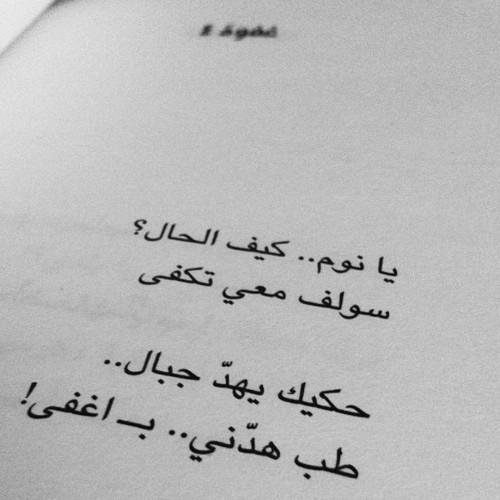 غفوة 4
يا نوم.. كيف الحال؟
سولف معي تكفى
حكيك يهدّ جبال..
طب هدّني.. بـ اغفى!